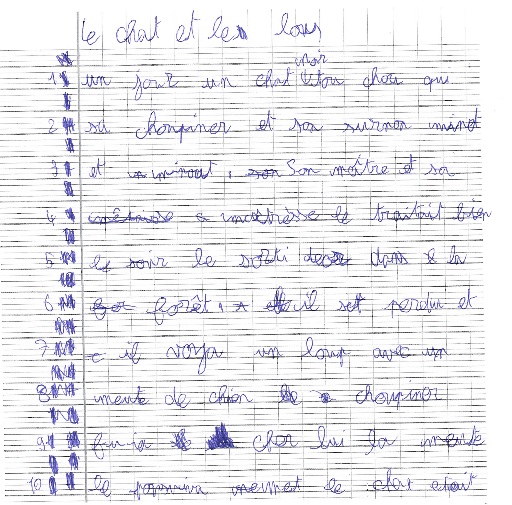 le chat et les lous
noir
1 un jour un chat tou chou qui
2 sa choupiner et son surnon minot
3 et minout, Son maitre et sa
4 maitresse le traitait bien
5 le soir le sorti dans la
6 forêt, il set perdu et
7 il voya un loup avec un
8 meute de chien choupiner
9 fui a cher lui la meute
10 le le chat etait